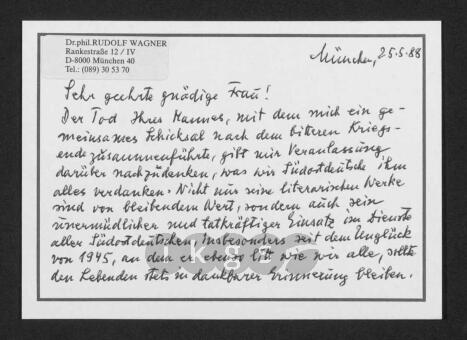 Dr.phil.RUDOLF WAGNER
Rankestraße 12 / IV
D-8000 München 40
Tel.: (089) 30 53 70
München, 25.5.88
Sehr geehrte gnädige Frau!
Der Tod Ihres Mannes, mit dem mich ein ge-
meinsames Schicksal nach dem bitteren Kriegs-
ende zusammenführte, gibt mir Veranlassung
darüber nachzudenken, was wir Südostdeutsche ihm
alles verdanken. Nicht nur seine literarischen Werke
sind von bleibendem Wert, sondern auch sein
unermüdlicher und tatkräftiger Einsatz im Dienste
aller Südostdeutschen, insbesonders seit dem Unglück
von 1945, an dem er ebenso litt wie wir alle, sollte
den Lebenden stets in dankbarer Erinnerung bleiben.
kgf